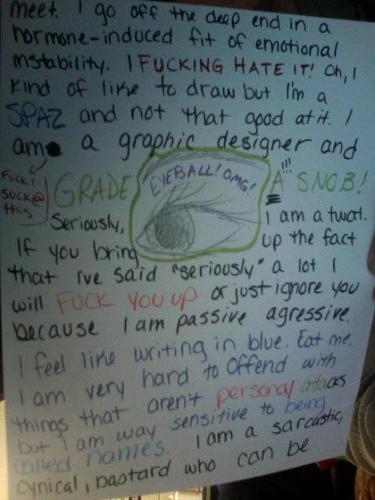 meet. I go off the deep end in a
hormone-induced fit of emotional
instability. I FUCKING HATE IT! Oh, I
kind of like to draw but I'm a
SPAZ and not that good at it. I
am a graphic designer and
FUCK! I SUCK @ this
GRADE EYEBALL! OMG! A!!! SNOB!
Seriously, I am a twat.
If you bring up the fact
that I've said "seriously" a lot I
will FUCK YOU UP or just ignore you
because I am passive agressive.
I feel like writing in blue. Eat me.
I am very hard to offend with
things that aren't personal attacks
but I am way sensitive to being
called names. I am a sarcastic,
cynical, bastard who can be